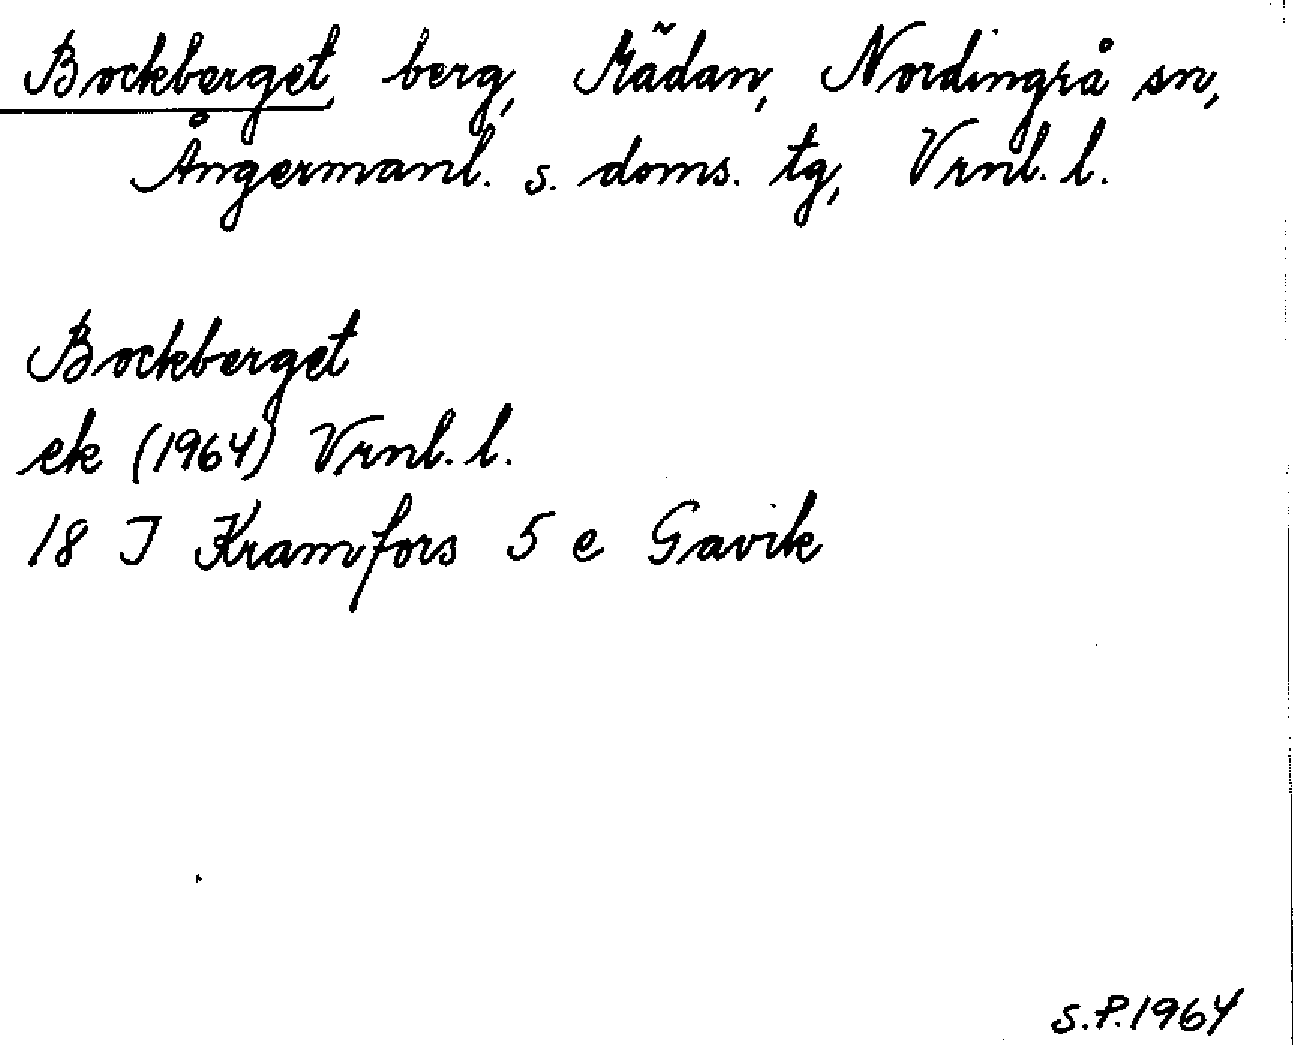 Bockberget, berg, Mädan, Nordingrå sn,
Ångermanl. s. doms. tg, Vrnl. l.
Bockberget
ek (1964) Vrnl. l.
18 I Kramfors 5 e Gavik
S.P.1964